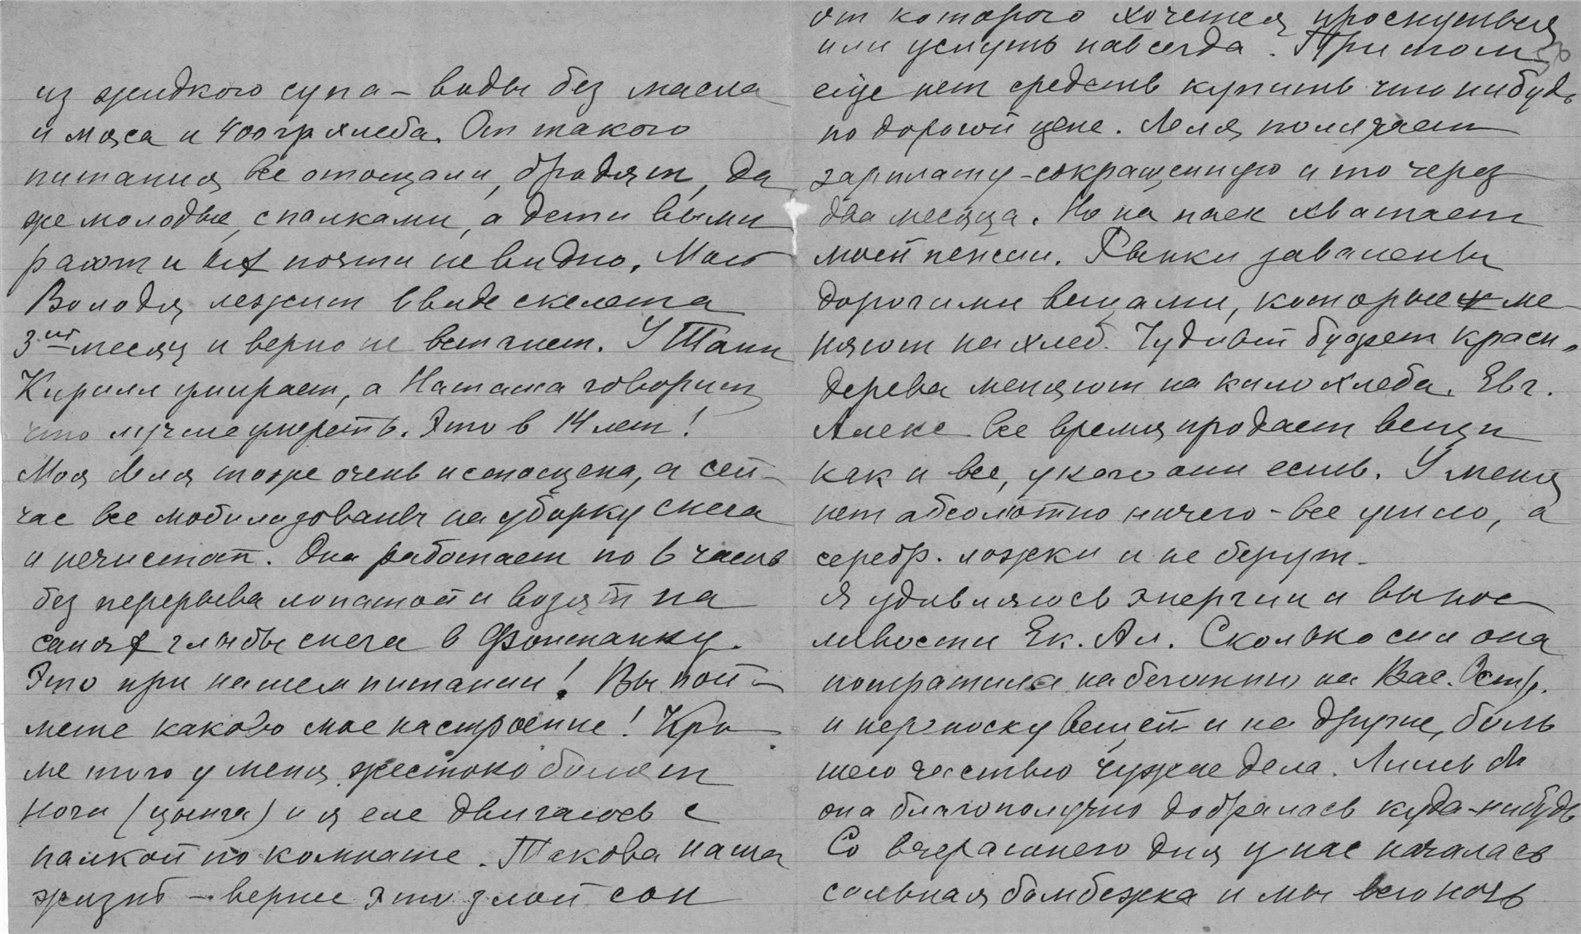 из жидкого супа – воды без масла
и мяса и 400 гр хлеба. От такого
питания все отощали, бродят, да
же молодые, с палками, а дети выми
рают и их почти не видно. Мой
Володя лежит в виде скелета
3ий месяц и верно не встанет. У Тани
Кирилл умирает, а Наташа говорит
что лучше умереть. Это в 14 лет!
Моя Леля тоже очень истощена, а сей-
час все мобилизованы на уборку снега
и нечистот. Она работает по 6 часов
без перерыва лопатой и возят на
санях глыбы снега в Фонтанку.
Это при нашем питании! Вы пой-
мете каково мое настроение! Кро
ме того у меня жестоко болят
ноги (цынга) и я еле двигаюсь с
палкой по комнате. Такова наша
жизнь – вернее это злой сон
от которого хочется проснуться
или уснуть навсегда. Притом
еще нет средств купить что нибудь
по дорогой цене. Леля получает
зарплату – сокращенную и то через
два месяца. Но на паек хватает
моей пенсии. Рынки завалены
дорогими вещами, которые ме-
няют на хлеб. Чудный буфет красн.
дерева меняют на кило хлеба. Евг.
Алекс все время продает вещи
как и все, у кого они есть. У меня
нет абсолютно ничего – все ушло, а
серебр. ложки и не берут.
Я удивляюсь энергии и вынос
ливости Ек. Ал. Сколько сил она
потратила на беготню на Вас. Остр.
и переноску вещей и на другие, боль
шею частью чужие дела. Лишь бы
она благополучно добралась куда-нибудь
Со вчерашнего дня у нас началась
сильная бомбежка и мы всю ночь